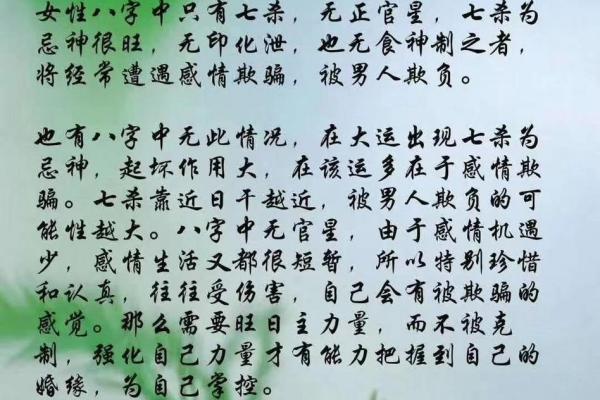 女性八字中只有七杀，无正官星，七杀为
忌神很旺，无印化泄，也无食神制之者，
将经常遭遇感情欺骗，被男人欺负。
也有八字中无此情况，在大运出现七杀为
忌神，起坏作用大，在该运多在于感情欺
骗。七杀靠近日干越近，被男人欺负的可
能性越大。八字中无官星，由于感情机遇
少，感情生活又都很短暂，所以特别珍惜
和认真，往往受伤害，自己会有被欺骗的
感觉。那么需要旺日主力量，而不被克
制，强化自己力量才有能力把握到自己的
婚缘，为自己掌控。